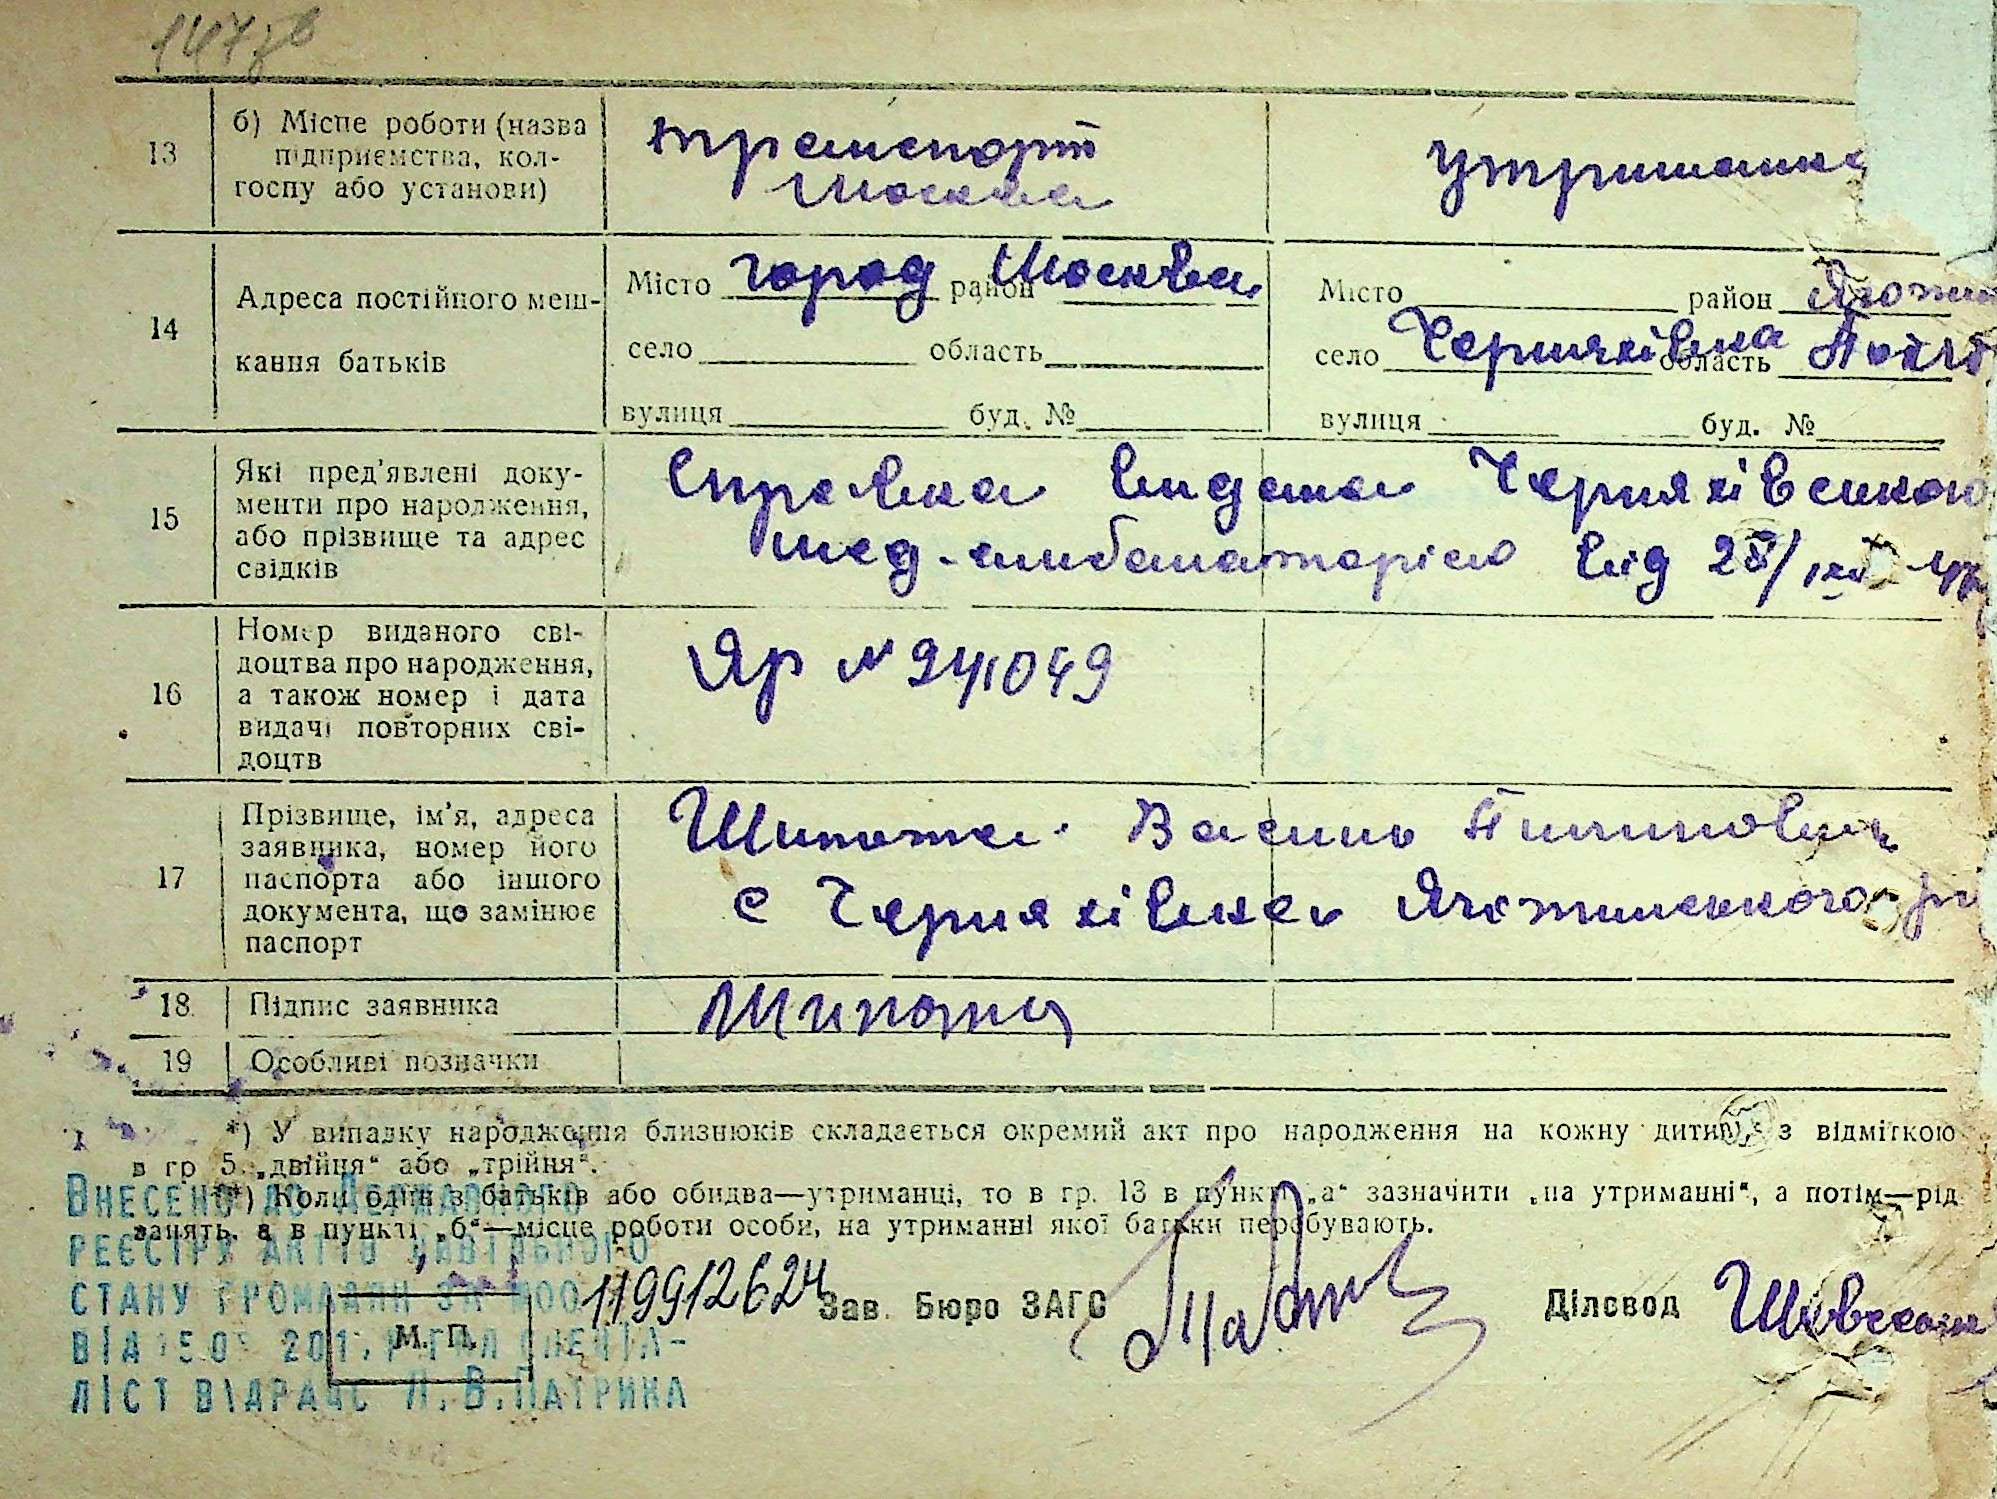 147зв
13
б) Місце роботи (назва
підприємства, кол-
госпу або установи)
транспорт
Москва
утриманка
14
Адреса постійного меш-
кання батьків
Місто город район Москва
село область
вулиця буд. №
Місто район
село Черняхівка область
вулиця буд. №
15
Які пред'явлені доку-
менти про народження,
або прізвище та адрес
свідків
Справка видана Черняхівською
мед-амбапаторією від
16
Номер виданого сві-
доцтва про народження,
а також номер і дата
видачі повторних сві-
доцтв
Яр № 241049
17
Прізвище, ім'я, адреса
заявника, номер його
паспорта або іншого
документа, що замінює
паспорт
Шипота Василь Пилипович
с Черняхівка Яготинського
18
Підпис заявника
Шипота
19
Особливі позначки
*) У випадку народження близнюків складається окремий акт про народження на кожну дитину, з відміткою
в гр 5 „двійня“ або „трійня“.
**) Коли один з батьків або обидва—утриманці, то в гр. 13 в пункті „а“ зазначити „на утриманні“, а потім—рід
занять, а в пункті „б“—місце роботи особи, на утриманні якої батьки перебувають.
Внесено до Державного
реєстру актів цивільного
стану громадян за №00119912624
від 201 спеціа-
ліст відрацс Л. В. Патрина
М. П.
Зав. Бюро ЗАГС
Діловод